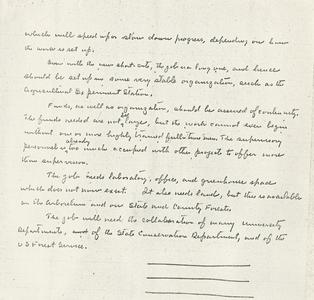 which will speed up or slow down progress, depending on how
the work is set up.
Even with the new short-cuts, the job is a long one, and hence
should be set up in some very stable organization, such as the
Agricultural Experiment Station.
Funds, as well as organization, should be assured of continuity.
The funds needed are not large, but the work cannot even begin
without one or more highly trained full-time men. The supervisory
personnel is already too much occupied with other projects to offer more
than supervision.
The job needs laboratory, office, and greenhouse space
which does not now exist. It also needs land, but this is available
in the Arboretum and our State and County Forests.
The job will need the collaboration of many University
Departments, of the State Conservation Department, and of the
U S Forest Service.